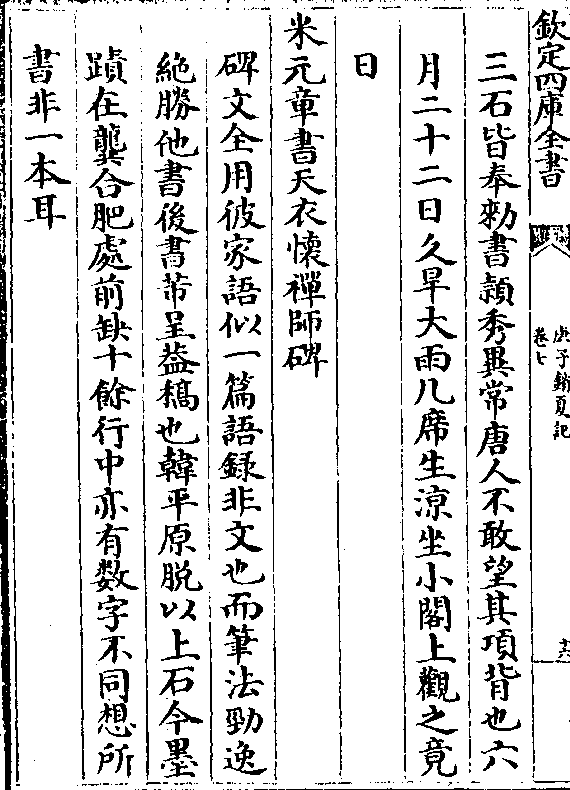 欽定四庫全書
庚子銷夏記
卷七
十六
三石皆奉勅書頴秀異常唐人不敢望其項背也六
月二十二日久旱大雨几席生涼坐小閣上觀之竟
日
米元章書天衣懷禪師碑
碑文全用彼家語似一篇語録非文也而筆法勁逸
絶勝他書後書芾呈葢稿也韓平原脱以上石今墨
蹟在龔合肥處前缺十餘行中亦有数字不同想所
書非一本耳